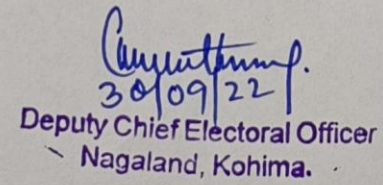 30/09/22
Deputy Chief Electoral Officer
Nagaland, Kohima.